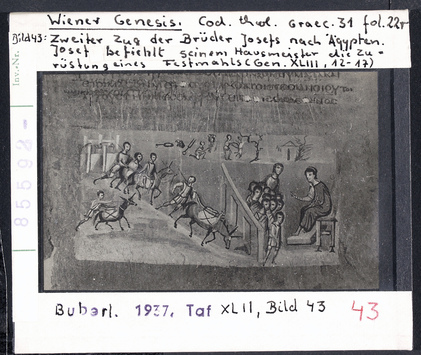 Wiener Genesis. Cod. theol. graec. 31 fol. 22r
Bild 43: Zweiter Zug der Brüder Josefs nach Ägypten.
Josef befiehlt seinem Hausmeister die Zu-
rüstung eines Festmahls (Gen. XLIII, 12-17)
Inv.-Nr.
85592-
Buberl. 1937, Taf XLII, Bild 43
43